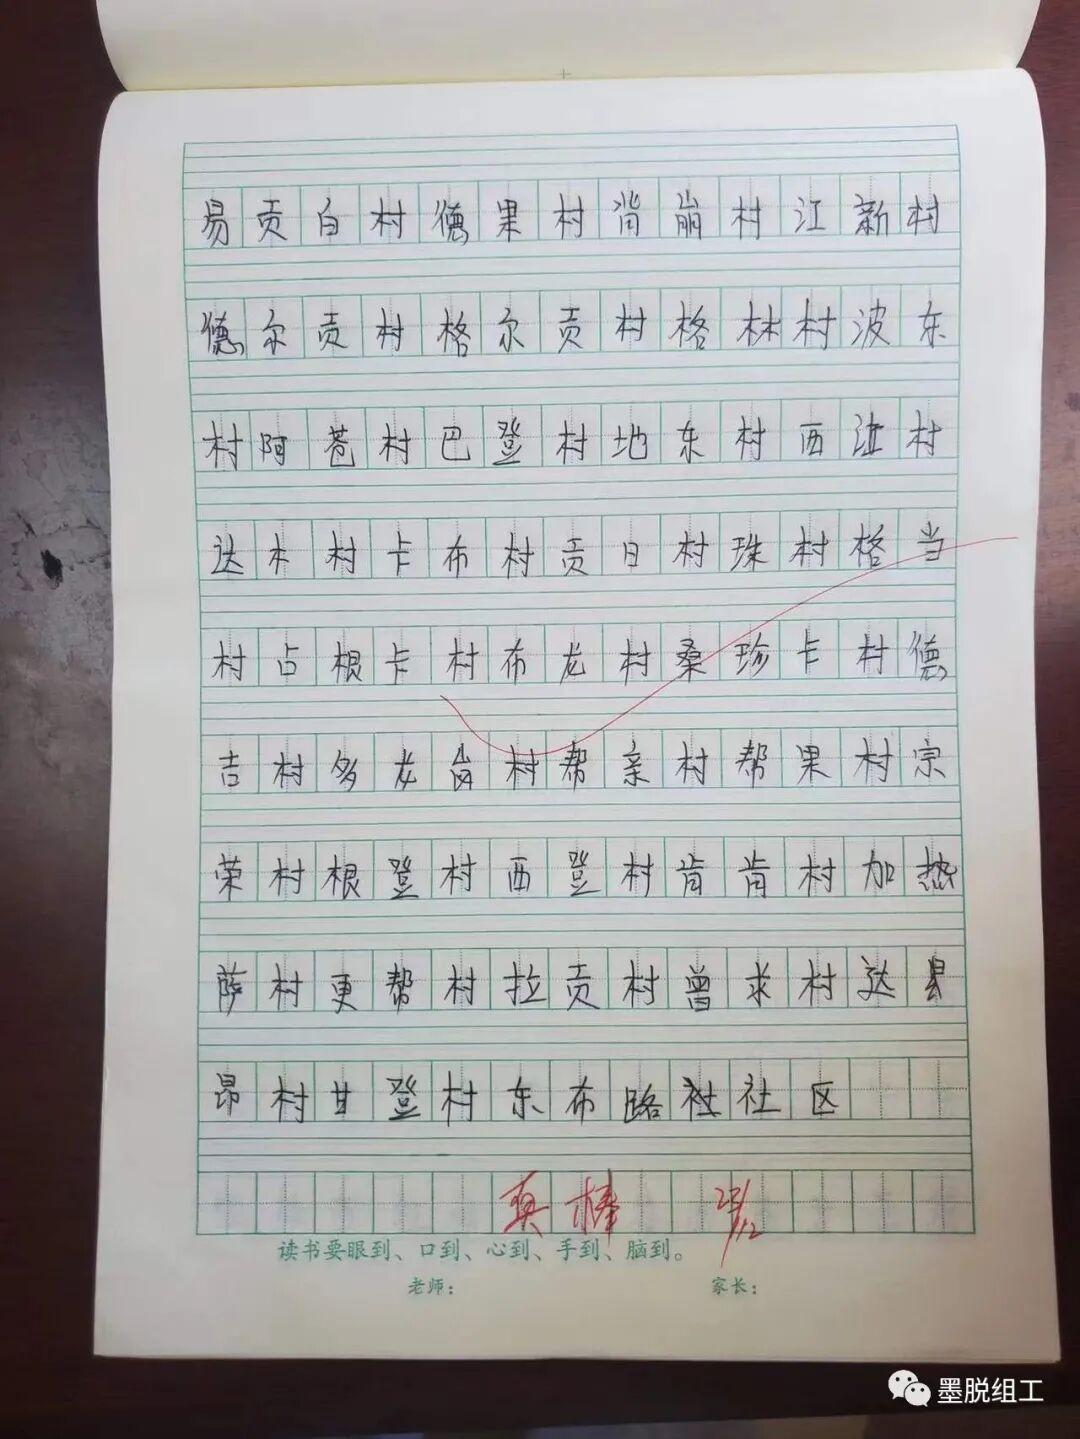 易贡白村德果村背崩村江新村
德尔贡村格尔贡村格林村波东
村阿苍村巴登村地东村西让村
达木村卡布村贡日村珠村格当
村占根卡村布龙村桑珍卡村德
吉村多龙岗村帮亲村帮果村宗
荣村根登村西登村肯肯村加热
萨村更帮村拉贡村曾求村达昌
昂村甘登村东布路社社区
真棒 23/12
读书要眼到、口到、心到、手到、脑到。
老师： 家长：
墨脱组工